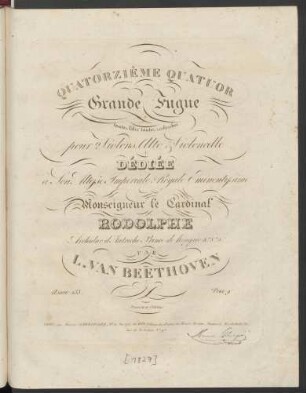 QUATORZIÈME QUATUOR
Grande Fugue
tantôt libre, tantôt recherchée
pour 2 Violons, Alto & Violoncelle
DÉDIÉE
à Son Altesse Impériale & Royale Eminentissime
Monseigneur le Cardinal
RODOLPHE
Archiduc d'Autriche, Prince de Hongrie &c. &c.
PAR
L. VAN BEETHOVEN
Œuvre 133
Prix
[1827]